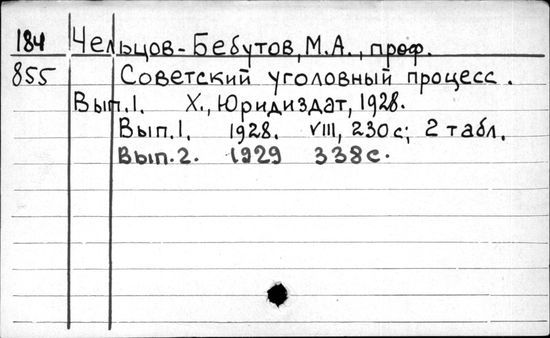 184 Чельцов-Бебутов, М.А., проф.
855 Советский уголовный процесс.
Вып.1. Х., Юридиздат, 1928.
Вып.1. 1928. VIII, 230 с; 2 табл.
Вып.2. 1929 338 с.